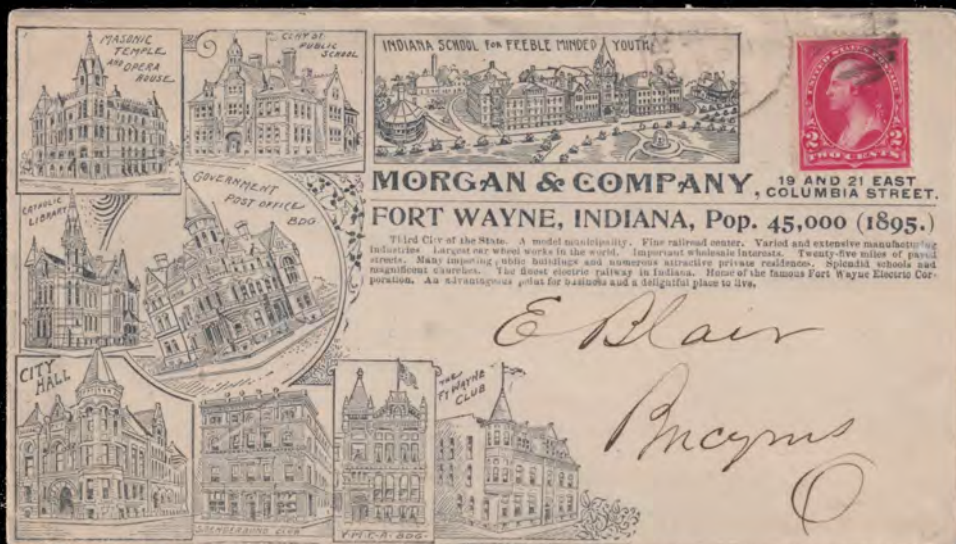 MASONIC
TEMPLE
AND OPERA
HOUSE
CLAY ST.
PUBLIC
SCHOOL
INDIANA SCHOOL FOR FEEBLE MINDED YOUTH
UNITED STATES POSTAGE
2 2
TWO CENTS
CATHOLIC
LIBRARY
GOVERNMENT
POST OFFICE
BDG
MORGAN & COMPANY, 19 AND 21 EAST
COLUMBIA STREET.
FORT WAYNE, INDIANA, Pop. 45,000 (1895.)
Third City of the State. A model municipality. Fine railroad center. Varied and extensive manufacturing
industries. Largest car wheel works in the world. Important wholesale interests. Twenty-five miles of paved
streets. Many imposing public buildings and numerous attractive private residences. Splendid schools and
magnificent churches. The finest electric railway in Indiana. Home of the famous Fort Wayne Electric Cor-
poration. An advantageous point for business and a delightful place to live.
E Blair
Bucyrus
O
CITY
HALL
THE
FT WAYNE
CLUB
CLUB
Y.M.C.A. BDG.